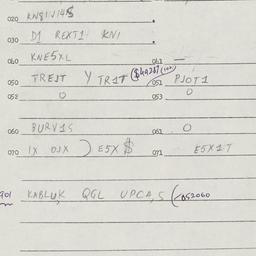 020 KN81V14S
030 D1 REXT1 KN1
040 KNE5XL 041 —
050 TREJT Y TR1T 051 PJOT1
052 0 053 0
060 BURV1S 061 0
070 1X OJX ) E5X $ 071 E5X1T
901 KNBLUK QGL UPCA,S